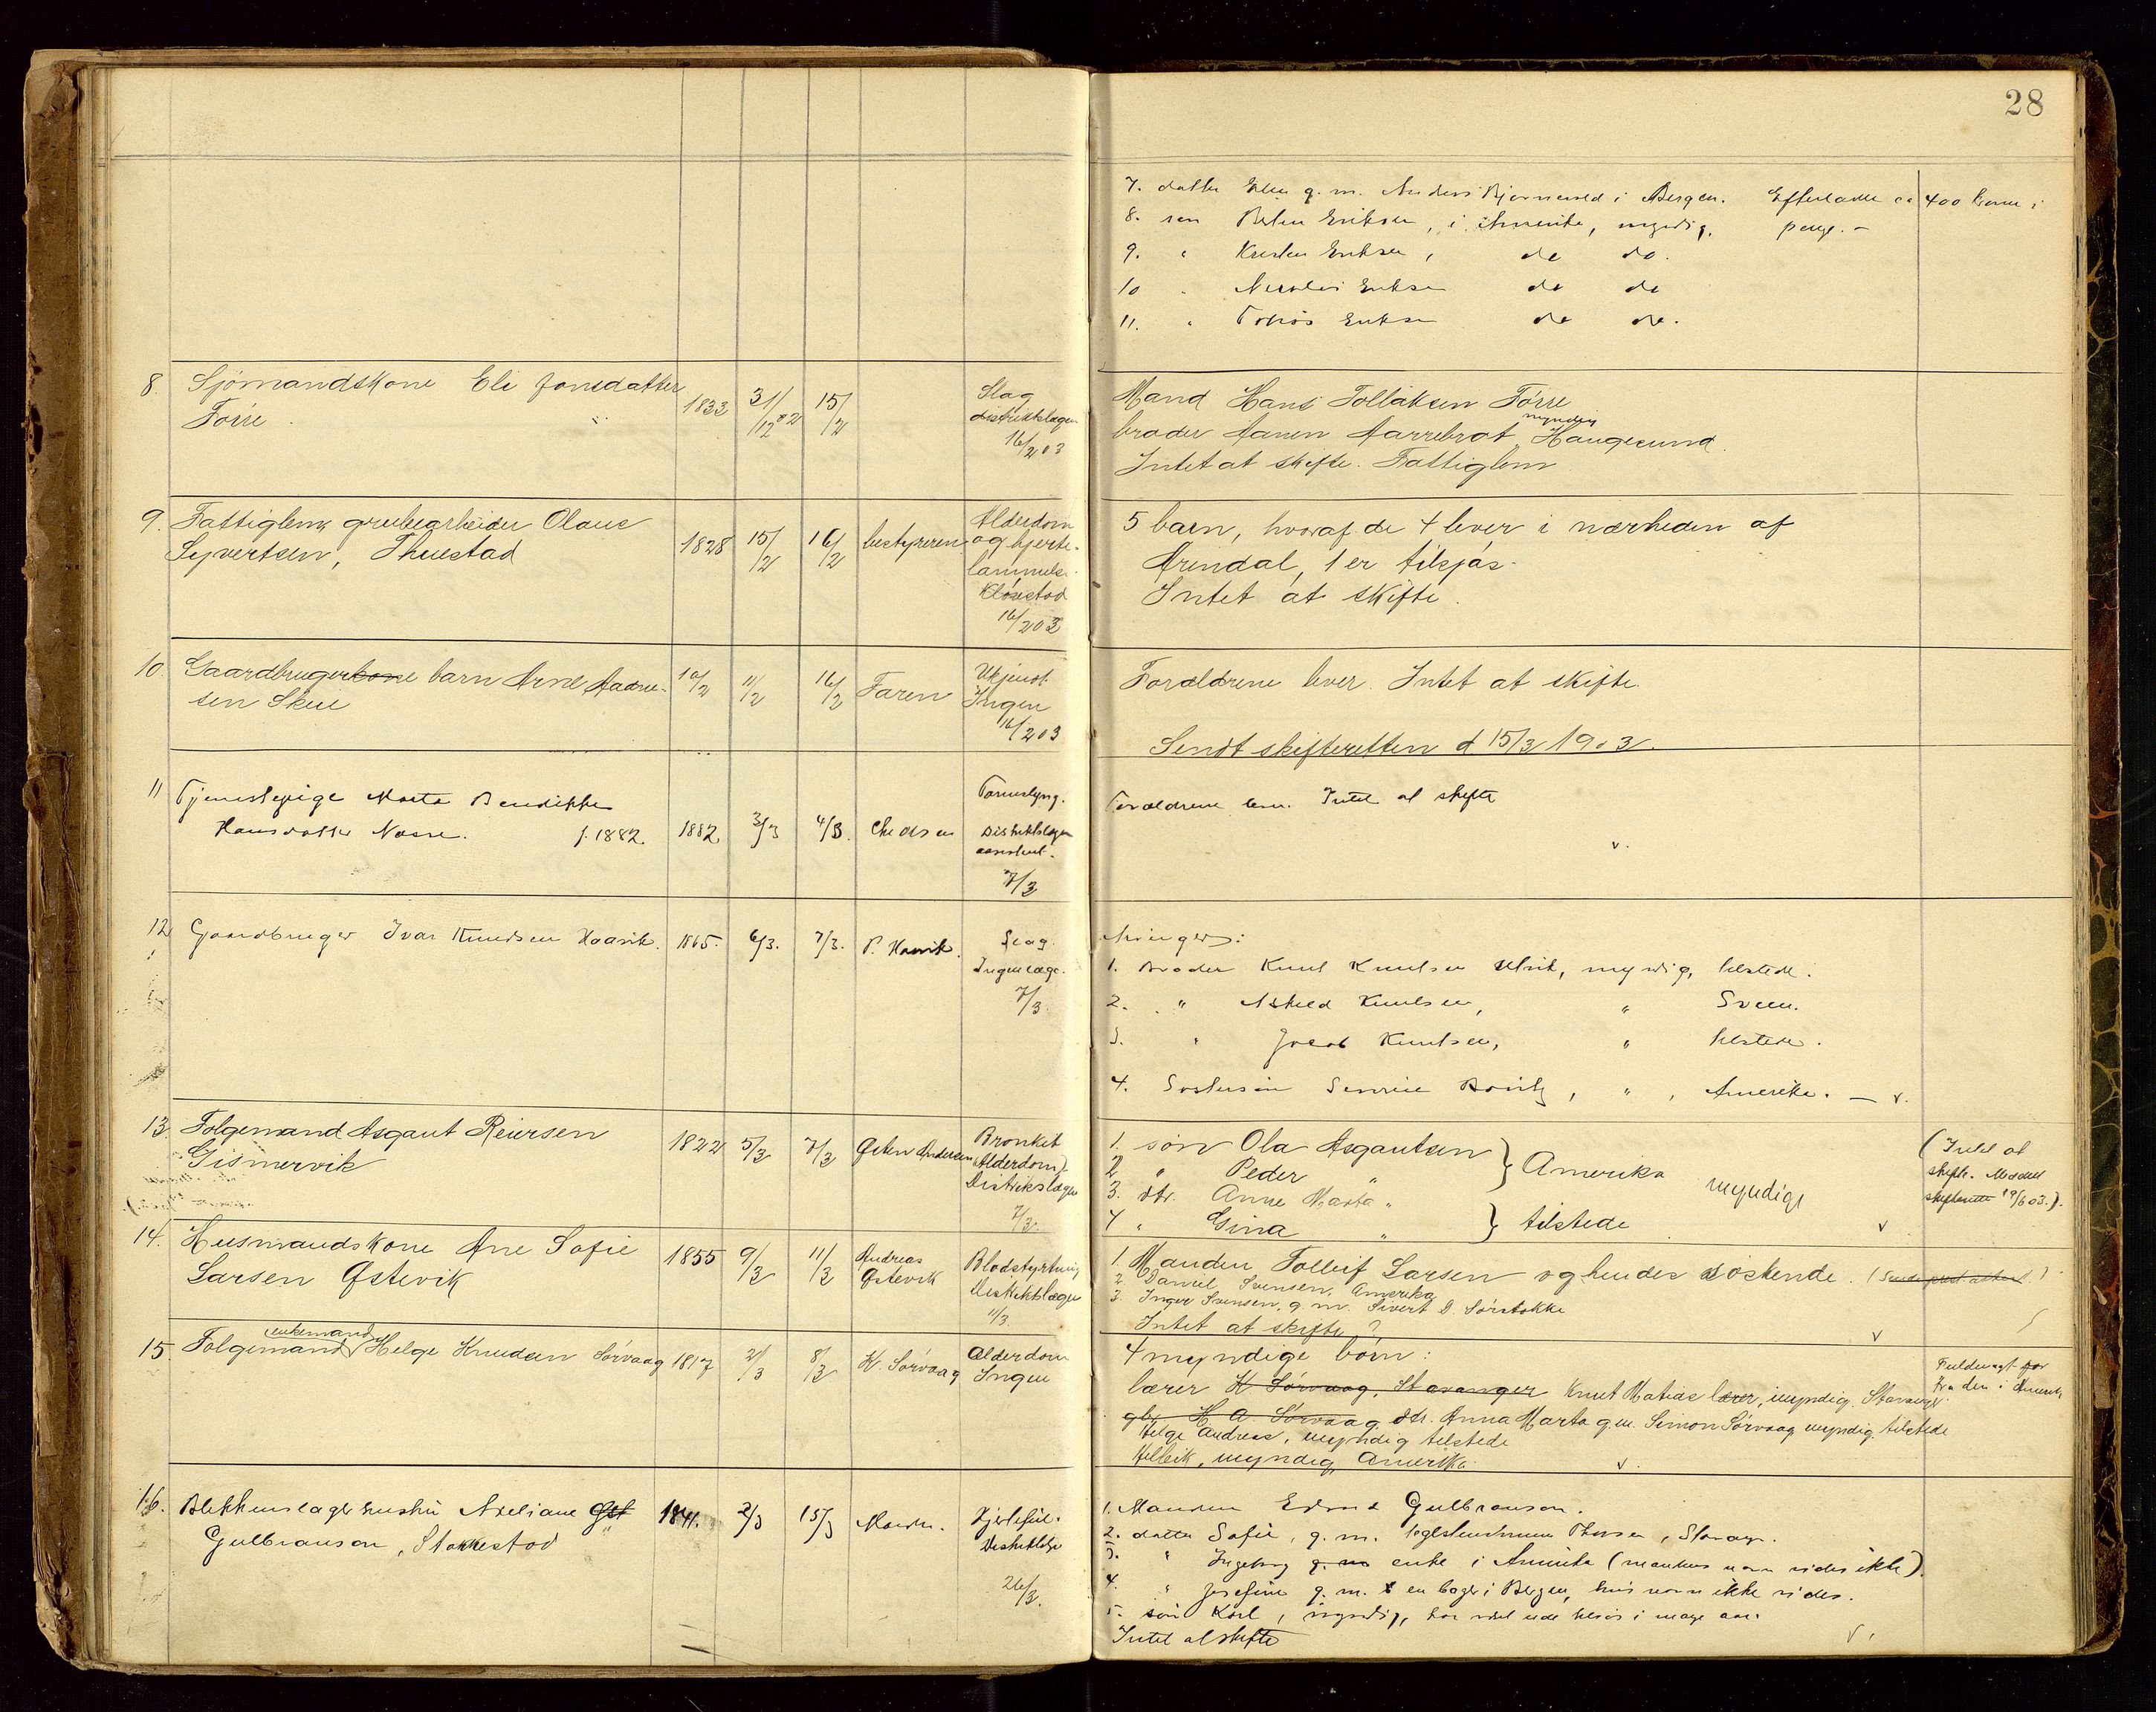 28
7. datter Elen g. m. Anders Bjørnevold i Bergen. Efterladte ca 400 kroner i
8. søn Eriksen, i Amerika, myndig. penge. —
9. " Kristen Eriksen, do do.
10 " Nicolai Eriksen do do
11. " Tobias Eriksen do do.
8. Sjømandskone Eli Jonsdatter
Førre
1833 31/12 02 15/2
Slag
distriktslægen
16/2 03
Mand Hans Tollaksen Førre
broder Aanen Aarrebrot, myndig Haugesund.
Intet at skifte. Fattiglem
9. Fattiglem, grubearbeider Olaus
Syvertsen, Thuestad
1828 15/2 16/2 bestyreren
Alderdom
og hjerte-
lammelse
16/2 03
5 barn, hvoraf de 4 lever i nærheden af
Arendal, 1 er tilsjøs.
Intet at skifte.
10. Gaardbrugerkone barn Arne Aadne-
sen Skeie
10/2 11/2 16/2 Faren
Ukjendt
Ingen
16/2 03
Forældrene lever. Intet at skifte.
Sendt skifteretten d 15/3 1903.
11 Tjenestepige Marta Bendikke
Hansdatter Nesse. f. 1882.
1882 3/3 4/3.
Distriktslægen
assistent.
7/3
Forældrene lever. Intet at skifte
v.
12 Gaardbruger Ivar Knudsen Haavik.
1865. 6/3. 7/3. P. Haavik.
Slag.
Ingen læge.
7/3.
Arvinger:
1. Broder Knut Knutsen, myndig, tilstede.
2. " Askild Knutsen, " Sveen.
3. " Jacob Knutsen, " tilstede.
4. Søstersøn, " , Amerika. — v.
13. Følgemand Asgaut Reiersen
Gismervik
1822 5/3 7/3 Østen Andersen
Bronket
(Alderdom)
Distriktslægen
7/3.
1. søn Ola Asgautsen
2 " Peder " } Amerika myndige
3. dtr. Anne Marta "
4 " Gina " } tilstede v
(Intet at
skifte. Meddelt
skifteretten 19/6 03.).
14. Husmandskone Ane Sofie
Larsen Østevik
1855 9/3 11/3 Andreas
Østevik
Blodstyrtning
Distriktslægen
11/3.
1. Manden Tolleif Larsen og hendes søskende.
2. Daniel Svensen, Amerika
3. Inger Svensen, g. m. Sivert D. Sørstokke
Intet at skifte ? v
15. Følgemand enkemand Helge Knudsen Sørvaag
1817 2/3 8/3 K. Sørvaag
Alderdom
Ingen
4 myndige børn:
lærer K Sørvaag, Stavanger Knut Matias lærer, myndig, Stavanger
gbr H A Sørvaag dtr. Anna Marta g. m. Simon Sørvaag myndig. tilstede
Helge Andreas, myndig tilstede
, myndig, Amerika. v.
Fuldmagt
fra den i Amerika
16. Blikkenslager hustru Axeliane Gul
Gulbranson, Stokkestad
1841. 2/3 15/3 Manden.
Hjertefeil.
Distriktslæge
26/3.
1. Manden Gulbranson.
2. datter Sofie, g. m. Thorsen, Stavanger.
3. " Ingeborg g. m. enke i Amerika (mandens navn vides ikke).
4. " Josefine g. m. en bager i Bergen, hvis navn ikke vides.
5. søn Karl, myndig, har været ude tilsjøs i mange aar.
Intet at skifte v.